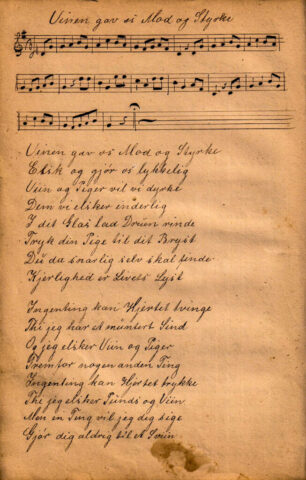 Vinen gav os Mod og Styrke
Vinen gav os Mod og Styrke
Elsk og gjör os lykkelig
Viin og Piger vil vi dyrke
Dem vi elsker inderlig
I det Glas lad Druen rinde
Tryk din Pige til dit Bryst
Dei da snarlig selv skal finde
Kjerlighed er Livets Lyst
Ingenting kan Hjertet tvinge
Thi jeg har et muntert Sind
Og jeg elsker Viin og Piger
Fremfor nogen anden Ting
Ingenting kan Hjertet trykke
Thi jeg elsker Punds og Viin
Men en Ting vil jeg dig sige
Gjör dig aldrig til et Sviin